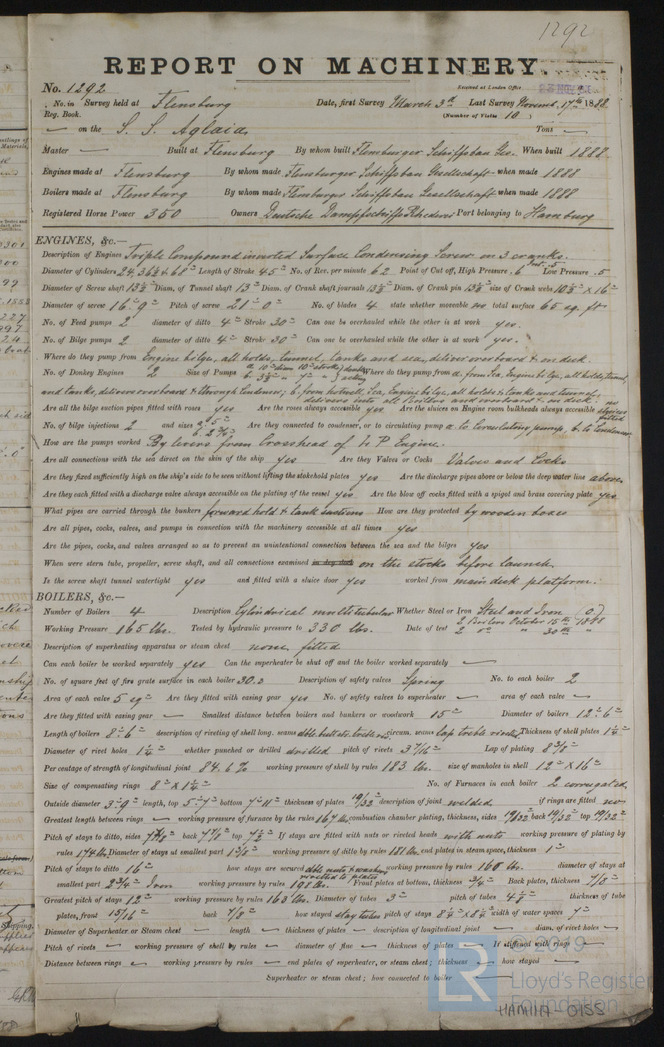 1292
REPORT ON MACHINERY
No. 1292
Received at London Office
No. in Survey held at Flensburg Date, first Survey March 3rd Last Survey Novemb. 17th 1888
Reg. Book. (Number of Visits 10)
— on the S. S. Aglaia Tons —
Master — Built at Flensburg By whom built Flensburger Schiffsbau Ges. When built 1888
Engines made at Flensburg By whom made Flensburger Schiffsbau Gesellschaft when made 1888
Boilers made at Flensburg By whom made Flensburger Schiffsbau Gesellschaft when made 1888
Registered Horse Power 350 Owners Deutsche Dampfschiffs Rhederei Port belonging to Hamburg
ENGINES, &c.—
Description of Engines Triple Compound inverted Surface Condensing Screw on 3 cranks.
Diameter of Cylinders 24, 36½ & 61" Length of Stroke 45" No. of Rev. per minute 62 Point of Cut off, High Pressure .6 Low Pressure .5
Diameter of Screw shaft Diam. of Tunnel shaft 13" Diam. of Crank shaft journals Diam. of Crank pin size of Crank webs
Diameter of screw 16'. 9" Pitch of screw 21'. 0" No. of blades 4 state whether moveable no total surface 65 sq. ft.
No. of Feed pumps 2 diameter of ditto 4" Stroke 30" Can one be overhauled while the other is at work yes.
No. of Bilge pumps 2 diameter of ditto 4" Stroke 30" Can one be overhauled while the other is at work yes.
Where do they pump from Engine bilge, all holds, tunnel, tanks and sea, deliver overboard & on deck.
No. of Donkey Engines 2 Size of Pumps Where do they pump from a. from Sea, Engine bilge, all holds, tunnel,
and tanks, delivers overboard & through Condenser; b. from hotwell, Sea, Engine bilge, all holds & tanks and tunnel,
delivers into all boilers and overboard & on deck
Are all the bilge suction pipes fitted with roses yes Are the roses always accessible yes Are the sluices on Engine room bulkheads always accessible no sluices fitted
No. of bilge injections 2 and sizes Are they connected to condenser, or to circulating pump a. to Circulating pump, b. to Condenser
How are the pumps worked By levers from Crosshead of H. P. Engine.
Are all connections with the sea direct on the skin of the ship yes Are they Valves or Cocks Valves and Cocks
Are they fixed sufficiently high on the ship's side to be seen without lifting the stokehold plates yes Are the discharge pipes above or below the deep water line above
Are they each fitted with a discharge valve always accessible on the plating of the vessel yes Are the blow off cocks fitted with a spigot and brass covering plate yes
What pipes are carried through the bunkers forward hold & tank suctions How are they protected by wooden boxes
Are all pipes, cocks, valves, and pumps in connection with the machinery accessible at all times yes
Are the pipes, cocks, and valves arranged so as to prevent an unintentional connection between the sea and the bilges yes
When were stern tube, propeller, screw shaft, and all connections examined in dry dock on the stocks before launch.
Is the screw shaft tunnel watertight yes and fitted with a sluice door yes worked from main deck platform.
BOILERS, &c.—
Number of Boilers 4 Description Cylindrical multitubular Whether Steel or Iron Steel and Iron
Working Pressure 165 lbs. Tested by hydraulic pressure to 330 lbs. Date of test 2 Boilers October 15th 1888
2 do " 30th "
Description of superheating apparatus or steam chest none fitted
Can each boiler be worked separately yes Can the superheater be shut off and the boiler worked separately —
No. of square feet of fire grate surface in each boiler 30.2 Description of safety valves Spring No. to each boiler 2
Area of each valve Are they fitted with easing gear yes No. of safety valves to superheater — area of each valve —
Are they fitted with easing gear — Smallest distance between boilers and bunkers or woodwork 15" Diameter of boilers 12'. 6"
Length of boilers 8'. 6" description of riveting of shell long. seams circum. seams lap treble riveted Thickness of shell plates
Diameter of rivet holes whether punched or drilled drilled pitch of rivets Lap of plating
Percentage of strength of longitudinal joint 84.6 % working pressure of shell by rules 183 lbs. size of manholes in shell 12" x 16"
Size of compensating rings No. of Furnaces in each boiler 2 corrugated
Outside diameter 3'. 9" length, top 5'. 7" bottom 7'. 11" thickness of plates 19/32 description of joint welded if rings are fitted no
Greatest length between rings — working pressure of furnace by the rules 167 lbs. combustion chamber plating, thickness, sides 19/32 back 19/32 top 19/32
Pitch of stays to ditto, sides back top If stays are fitted with nuts or riveted heads with nuts working pressure of plating by
rules 174 lbs. Diameter of stays at smallest part working pressure of ditto by rules 181 lbs. end plates in steam space, thickness 1"
Pitch of stays to ditto 16" how stays are secured dble nuts & washers riveted to plates working pressure by rules 168 lbs. diameter of stays at
smallest part 2¾" Iron working pressure by rules 191 lbs. Front plates at bottom, thickness ¾" Back plates, thickness 7/8"
Greatest pitch of stays 12" working pressure by rules Diameter of tubes 3" pitch of tubes thickness of tube
plates, front 15/16" back 7/8" how stayed stay tubes pitch of stays width of water spaces 7"
Diameter of Superheater or Steam chest — length — thickness of plates — description of longitudinal joint — diam. of rivet holes —
Pitch of rivets — working pressure of shell by rules — diameter of flue — thickness of plates — If stiffened with rings —
Distance between rings — working pressure by rules — end plates of superheater, or steam chest; thickness — how stayed —
Superheater or steam chest; how connected to boiler —
© 2019
LR
Lloyd's Register
Foundation
HAM117-0155